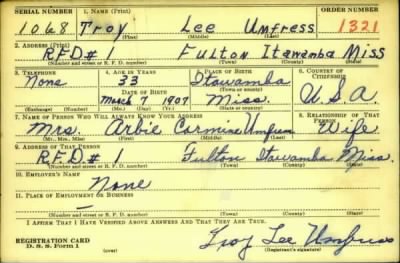 SERIAL NUMBER 1. NAME (Print) ORDER NUMBER
1068 Troy Lee Umfress 1321
(First) (Middle) (Last)
2. ADDRESS (Print)
RFD# 1 Fulton Itawamba Miss
(Number and street or R. F. D. number) (Town) (County) (State)
3. TELEPHONE 4. AGE IN YEARS 5. PLACE OF BIRTH 6. COUNTRY OF CITIZENSHIP
None 33 Itawamba
DATE OF BIRTH (Town or county)
March 7 1907 Miss. U.S.A.
(Exchange) (Number) (Mo.) (Day) (Yr.) (State or country)
7. NAME OF PERSON WHO WILL ALWAYS KNOW YOUR ADDRESS 8. RELATIONSHIP OF THAT PERSON
Mrs. Arbie Carmine Umfress Wife
(Mr., Mrs., Miss) (First) (Middle) (Last)
9. ADDRESS OF THAT PERSON
R.F.D.# 1 Fulton Itawamba Miss.
(Number and street or R. F. D. number) (Town) (County) (State)
10. EMPLOYER'S NAME
None
11. PLACE OF EMPLOYMENT OR BUSINESS
(Number and street or R. F. D. number) (Town) (County) (State)
I AFFIRM THAT I HAVE VERIFIED ABOVE ANSWERS AND THAT THEY ARE TRUE.
REGISTRATION CARD
D. S. S. Form 1 Troy Lee Umfress
(over) (Registrant's signature)